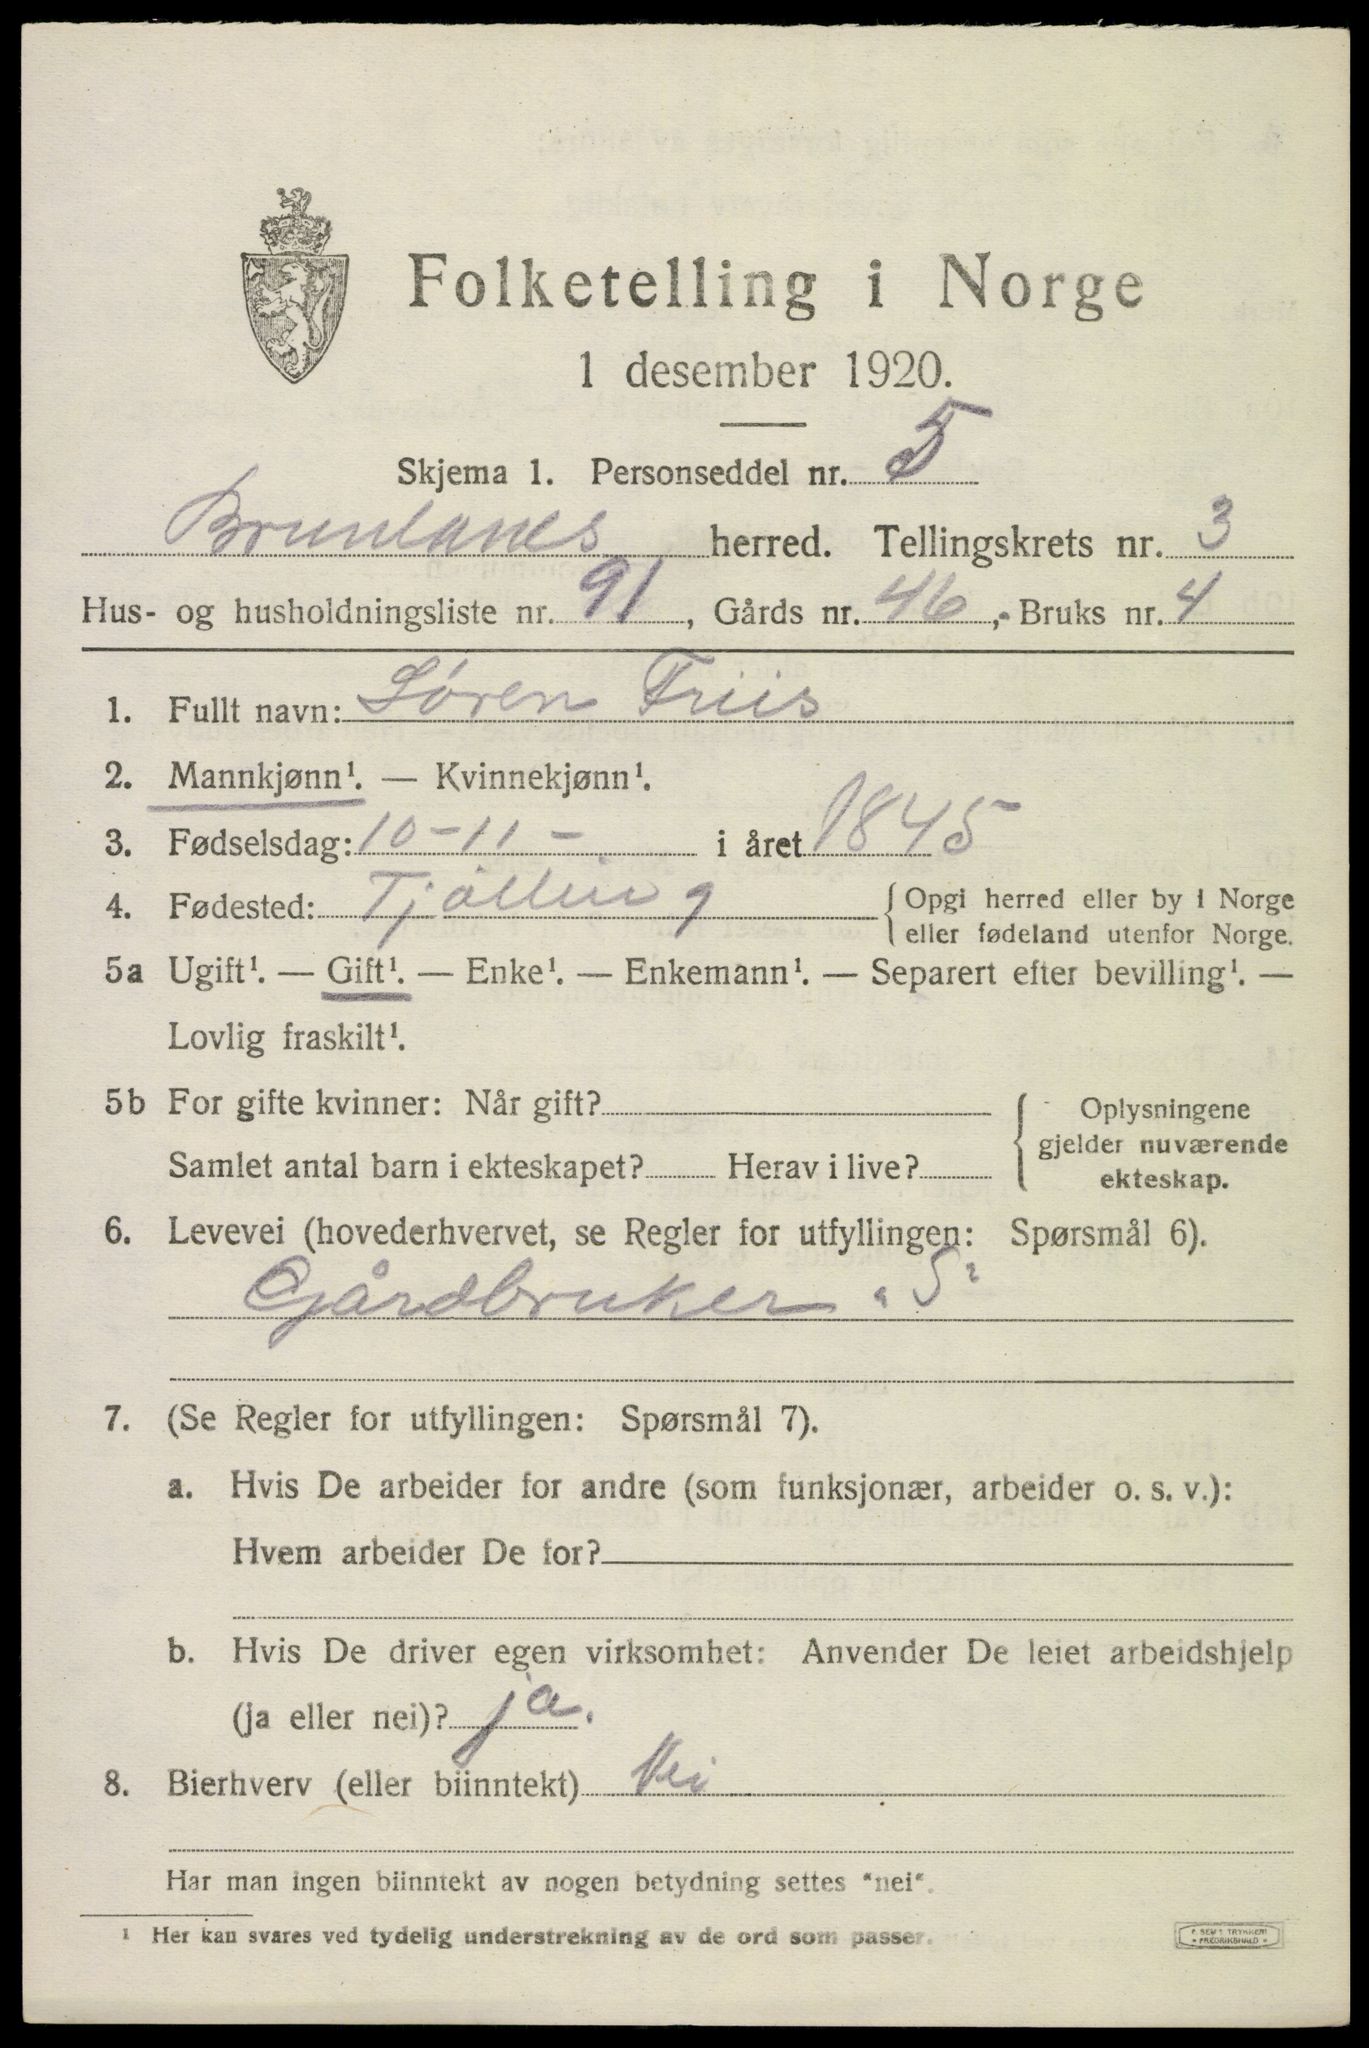 Folketelling i Norge
1 desember 1920.
Skjema 1. Personseddel nr. 5
Brunlanes herred. Tellingskrets nr. 3
Hus- og husholdningsliste nr. 91, Gårds nr. 46, Bruks nr. 4
1. Fullt navn: Søren Friis
2. Mannkjønn¹. — Kvinnekjønn¹.
3. Fødselsdag: 10-11- i året 1845
4. Fødested: Tjølling {Opgi herred eller by i Norge
eller fødeland utenfor Norge.
5a Ugift¹. — Gift¹. — Enke¹. — Enkemann¹. — Separert efter bevilling¹. —
Lovlig fraskilt¹.
5b For gifte kvinner: Når gift? { Oplysningene
gjelder nuværende
Samlet antal barn i ekteskapet? Herav i live? ekteskap.
6. Levevei (hovederhvervet, se Regler for utfyllingen: Spørsmål 6).
Gårdbruker "S"
7. (Se Regler for utfyllingen: Spørsmål 7).
a. Hvis De arbeider for andre (som funksjonær, arbeider o. s. v.):
Hvem arbeider De for?
b. Hvis De driver egen virksomhet: Anvender De leiet arbeidshjelp
(ja eller nei)? ja.
8. Bierhverv (eller biinntekt) Nei
Har man ingen biinntekt av nogen betydning settes "nei".
¹ Her kan svares ved tydelig understrekning av de ord som passer.
SEM'S TRYKKERI
FREDRIKSHALD